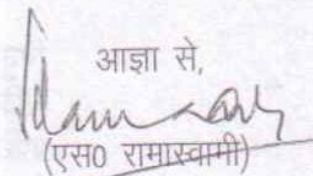 आज्ञा से,
(एस0 रामास्वामी)